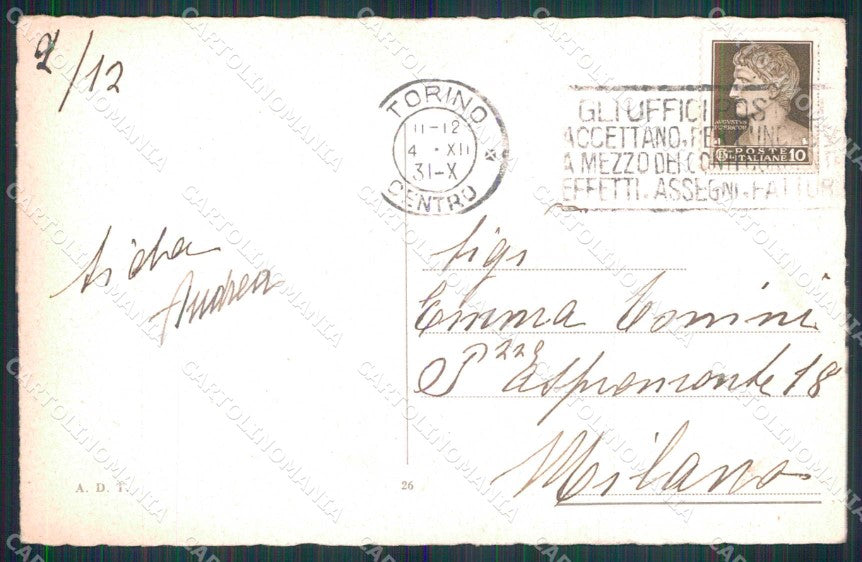 2/12
TORINO
11-12
4 · XII
31-X
CENTRO
GLI UFFICI POS
ACCETTANO
A MEZZO DEI CONTI
EFFETTI. ASSEGNI. FATTUR
AUGUSTUS
IMPERATOR
POSTE
ITALIANE 10
Andrea
Sigr
Emma Tonini
Pzza Aspromonte 18
Milano
A. D. T.
26
CARTOLINOMANIA